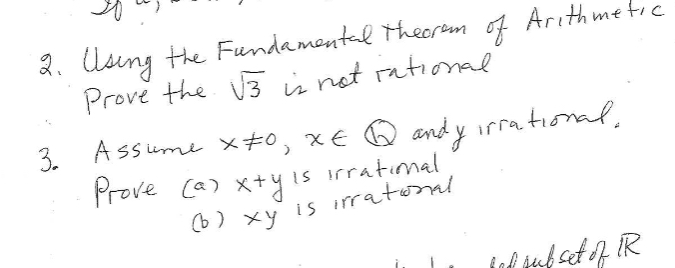 2. Using the Fundamental Theorem of Arithmetic
Prove the √3 is not rational
3. Assume x≠0, x ∈ ℚ and y irrational.
Prove (a) x+y is irrational
(b) xy is irrational
subset of ℝ